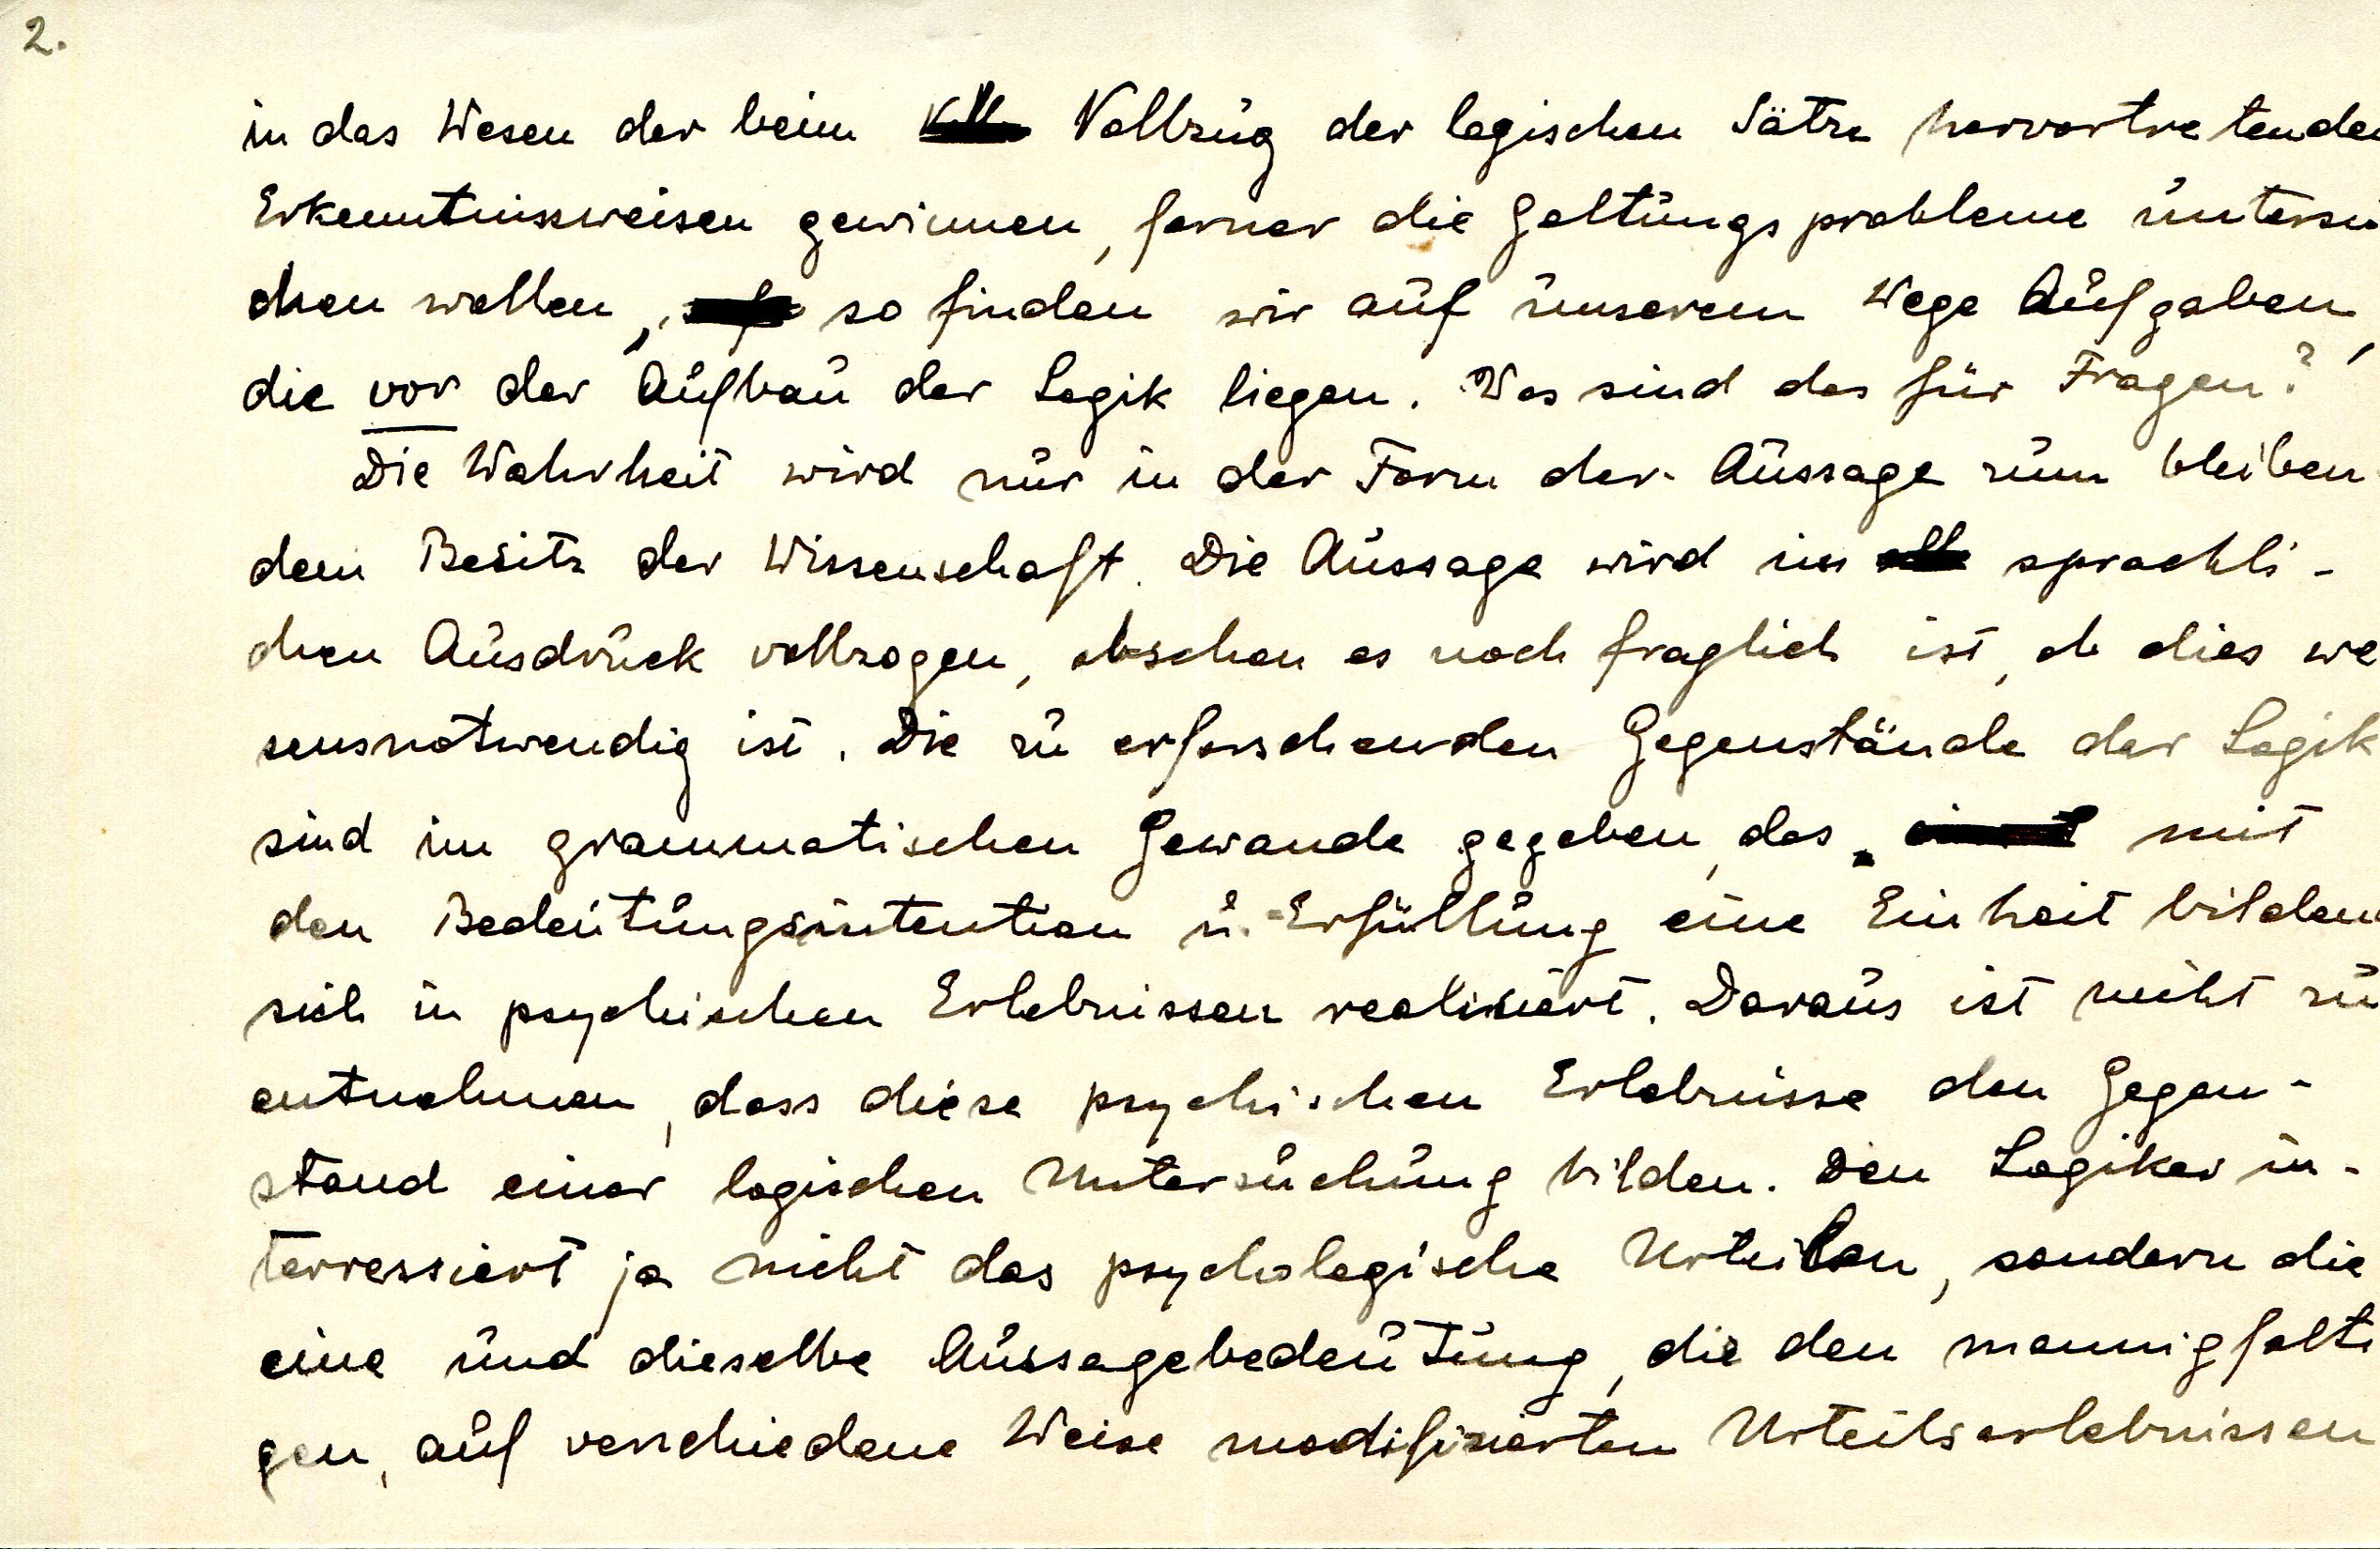 2.
in das Wesen der beim Vollzug der logischen Sätze hervortretenden
Erkenntnissweisen gewinnen, ferner die Geltungsprobleme untersu
chen wollen, so finden wir auf unserem Wege Aufgaben,
die vor der Aufbau der Logik liegen. Was sind das für Fragen?
Die Wahrheit wird nur in der Form der Aussage zum bleiben
dem Besitz der Wissenschaft. Die Aussage wird im sprachli-
chen Ausdruck vollzogen, obschon es noch fraglich ist, ob dies we
sensnotwendig ist. Die zu erforschenden Gegenstände der Logik
sind im grammatischen Gewande gegeben, das mit
den Bedeutungsintention u. -Erfüllung eine Einheit bildend
sich in psychischen Erlebnissen realisiert. Daraus ist nicht zu
entnehmen, dass diese psychischen Erlebnisse den Gegen-
stand einer logischen Untersuchung bilden. Den Logiker in-
terressiert ja nicht das psychologische Urteilen, sondern die
eine und dieselbe Aussagebedeutung, die den mannigfalti
gen, auf verschiedene Weise modifizierten Urteilserlebnissen